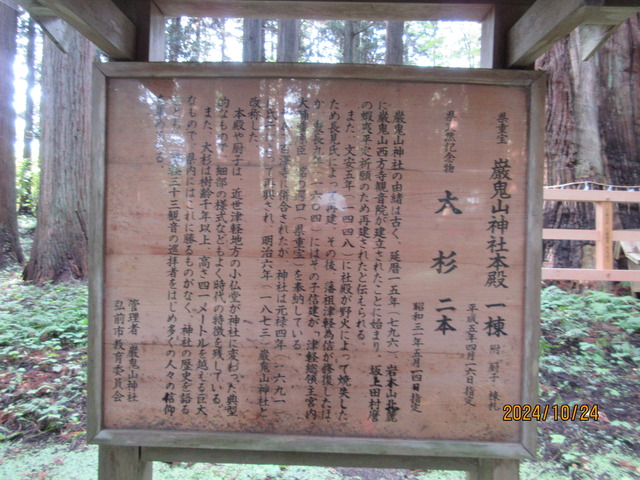 県重宝 巌鬼山神社本殿 一棟 附 厨子 棟札
平成五年四月二六日指定
県天然記念物 大杉 二本
昭和三一年五月一四日指定
巌鬼山神社の由緒は古く、延暦一五年(七九六)、岩木山北麓
に巌鬼山西方寺観音院が建立されたことに始まり、坂上田村麿
の蝦夷平定祈願のため再建されたと伝えられる。
また、文安五年(一四四八)に社殿が野火によって焼失した
ため長見氏によって再建、その後、藩祖津軽為信が修復したほ
か、慶長九年(一六〇四)にはその子信建が「津軽総領主宮内
大輔藤原臣」銘の鰐口(県重宝)を奉納している。
に併合されたが、神社は元禄四年(一六九一)
によって再興され、明治六年(一八七三)巌鬼山神社と
改称した。
本殿や厨子は、近世津軽地方の小仏堂が神社に変わった典型
的なもので、細部の様式などもよく時代の特徴を残している。
また、大杉は樹齢千年以上、高さ四一メートルを越える巨大
なもので、県内にはこれに勝るものがなく、神社の歴史を語る
とともに、津軽三十三観音の巡拝者をはじめ多くの人々の信仰
を集めている。
管理者 巌鬼山神社
弘前市教育委員会
2024/10/24